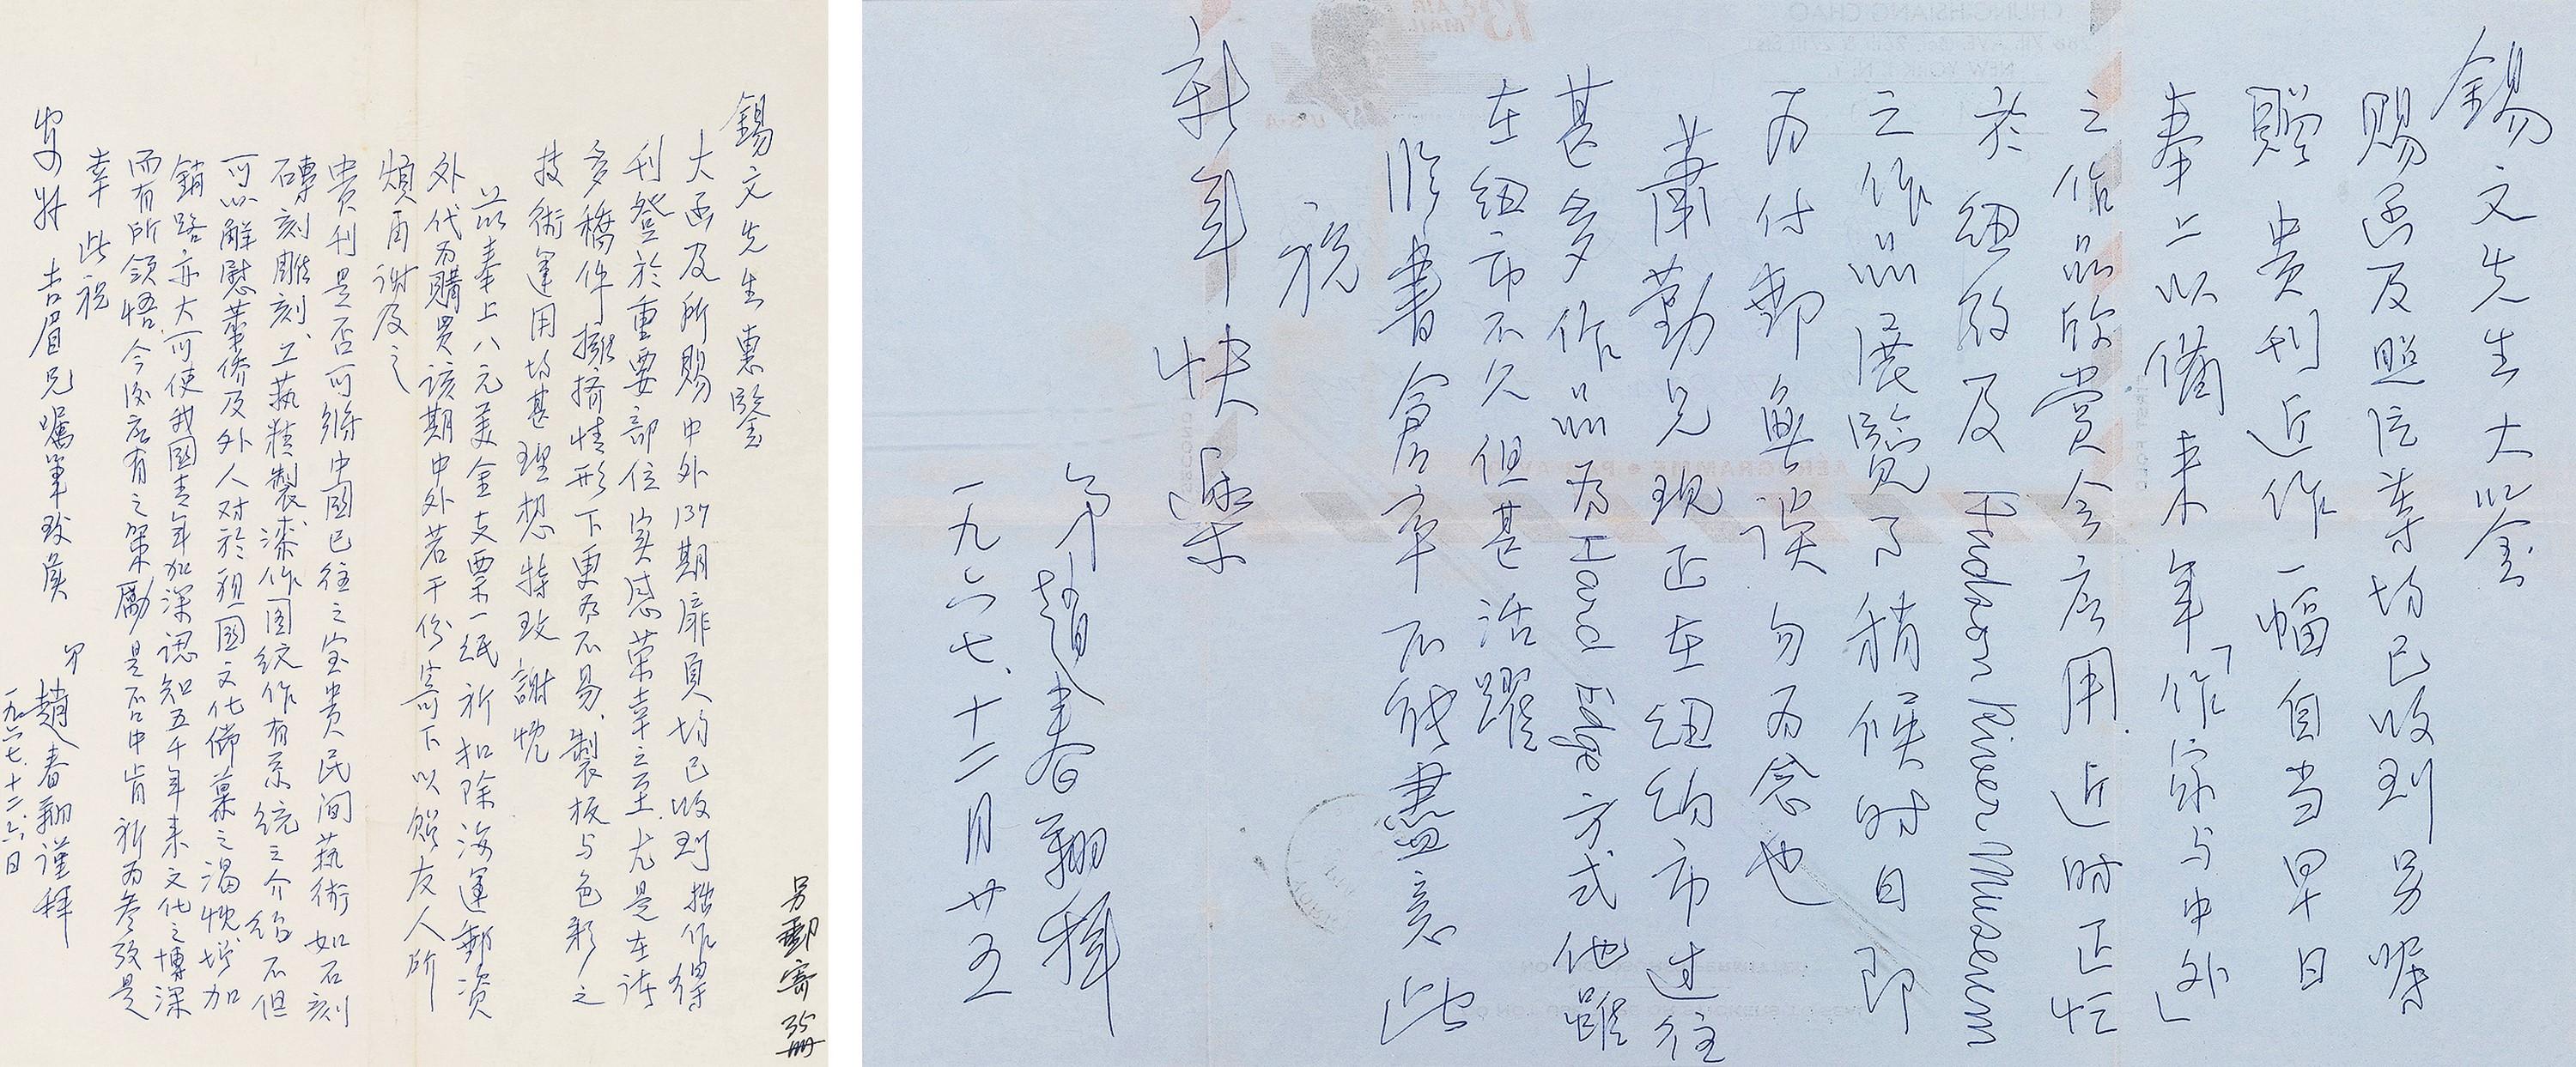 錫文先生惠鑒
大函及所賜中外137期扉頁均已收到拙作得
刊登於重要部位实感荣幸之至.尤是在诸
多稿件擁擠情形下更為不易、製板与色彩之
技術運用均甚理想特致謝忱
茲奉上八元美金支票一紙祈扣除海運郵资
外代为購買该期中外若干份寄下以贈友人所
煩再谢及之
貴刊是否可將中國已往之宝貴民间藝術如石刻
磚刻雕刻、工藝精製漆作图纹作有系统之介绍不但
可以解慰華侨及外人对於祖國文化儒慕之渴忱增加
銷路亦大可使我國青年加深認知五千年来文化之博深
而有所領悟今後应有之策勵是否中肯祈为參改是
幸 此祝
安好 吉眉兄囑筆致候
弟趙春翔谨拜
一九六七.十二.六.日
另郵寄35冊
錫文先生大鉴
赐函及照片等均已收到另嘱
赠 贵刊近作一幅自当早日
奉上以備来年「作家与中外」
之作品欣赏今后用.近时正忙
於纽约及Hudson River Museum
之作品展覽了稍候时日即
为付郵無误勿为念也
萧勤兄现正在纽约市过往
甚多作品为Hard Edge方式他雖
在纽市不久但甚活躍
临書倉卒不能盡意此
祝
新年快樂
弟趙春翔拜
一九六七.十二月廿五
CHUNG-HSIANG CHAO
NEW YORK, N.Y.